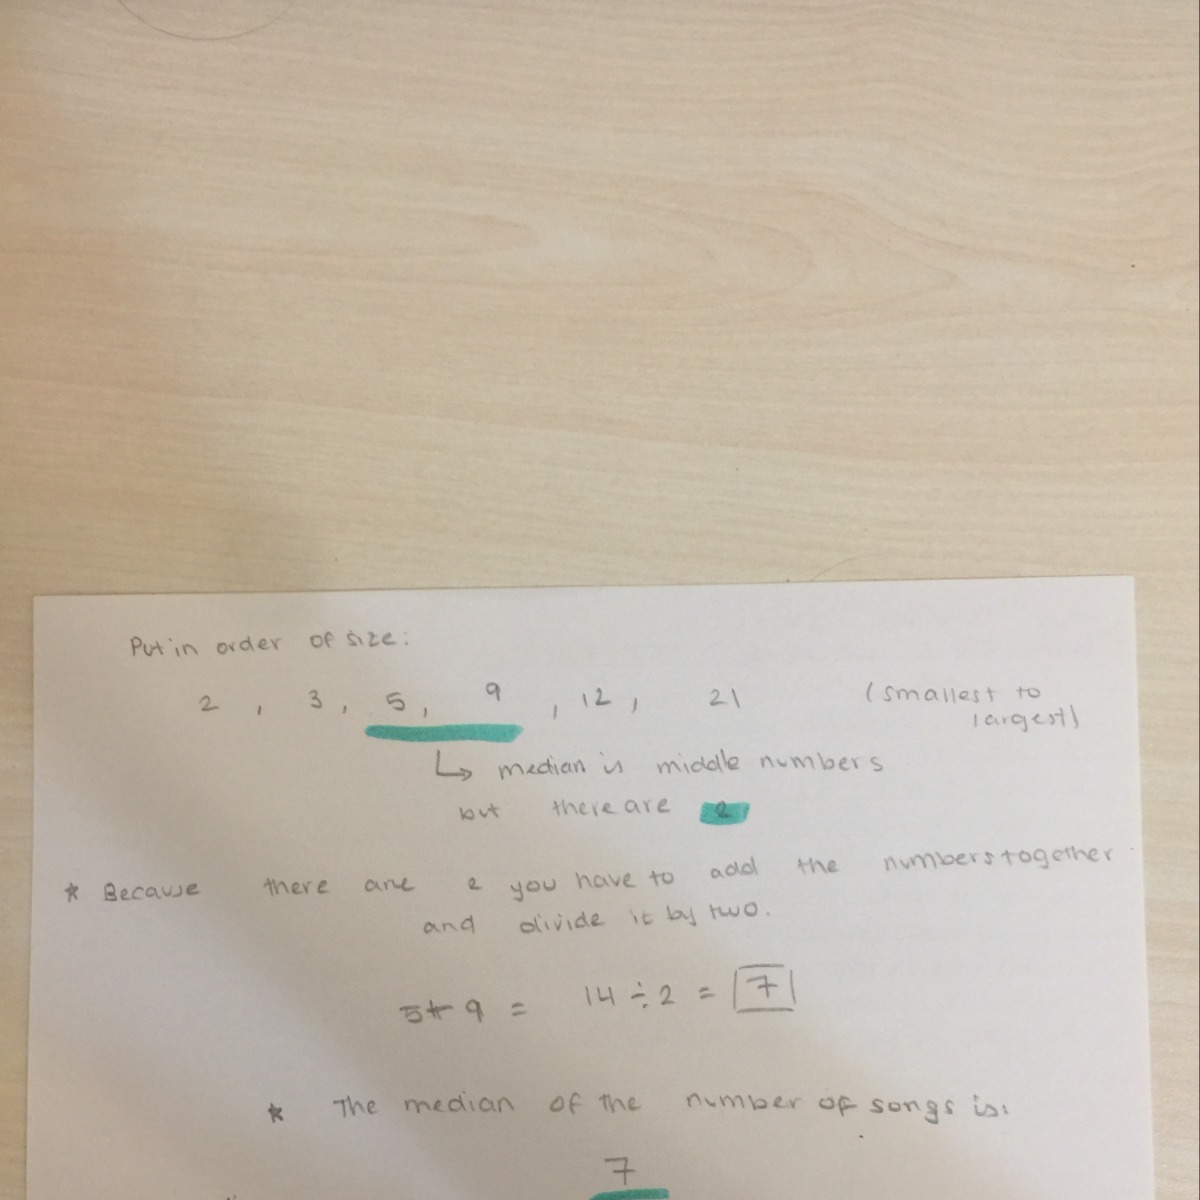 Put in order of size:
2 , 3 , 5 , 9 , 12 , 21 (smallest to
largest)
↳ median is middle numbers
but there are 2
* Because there are 2 you have to add the numbers together
and divide it by two.
5+9 = 14 ÷ 2 = 7
* The median of the number of songs is:
7